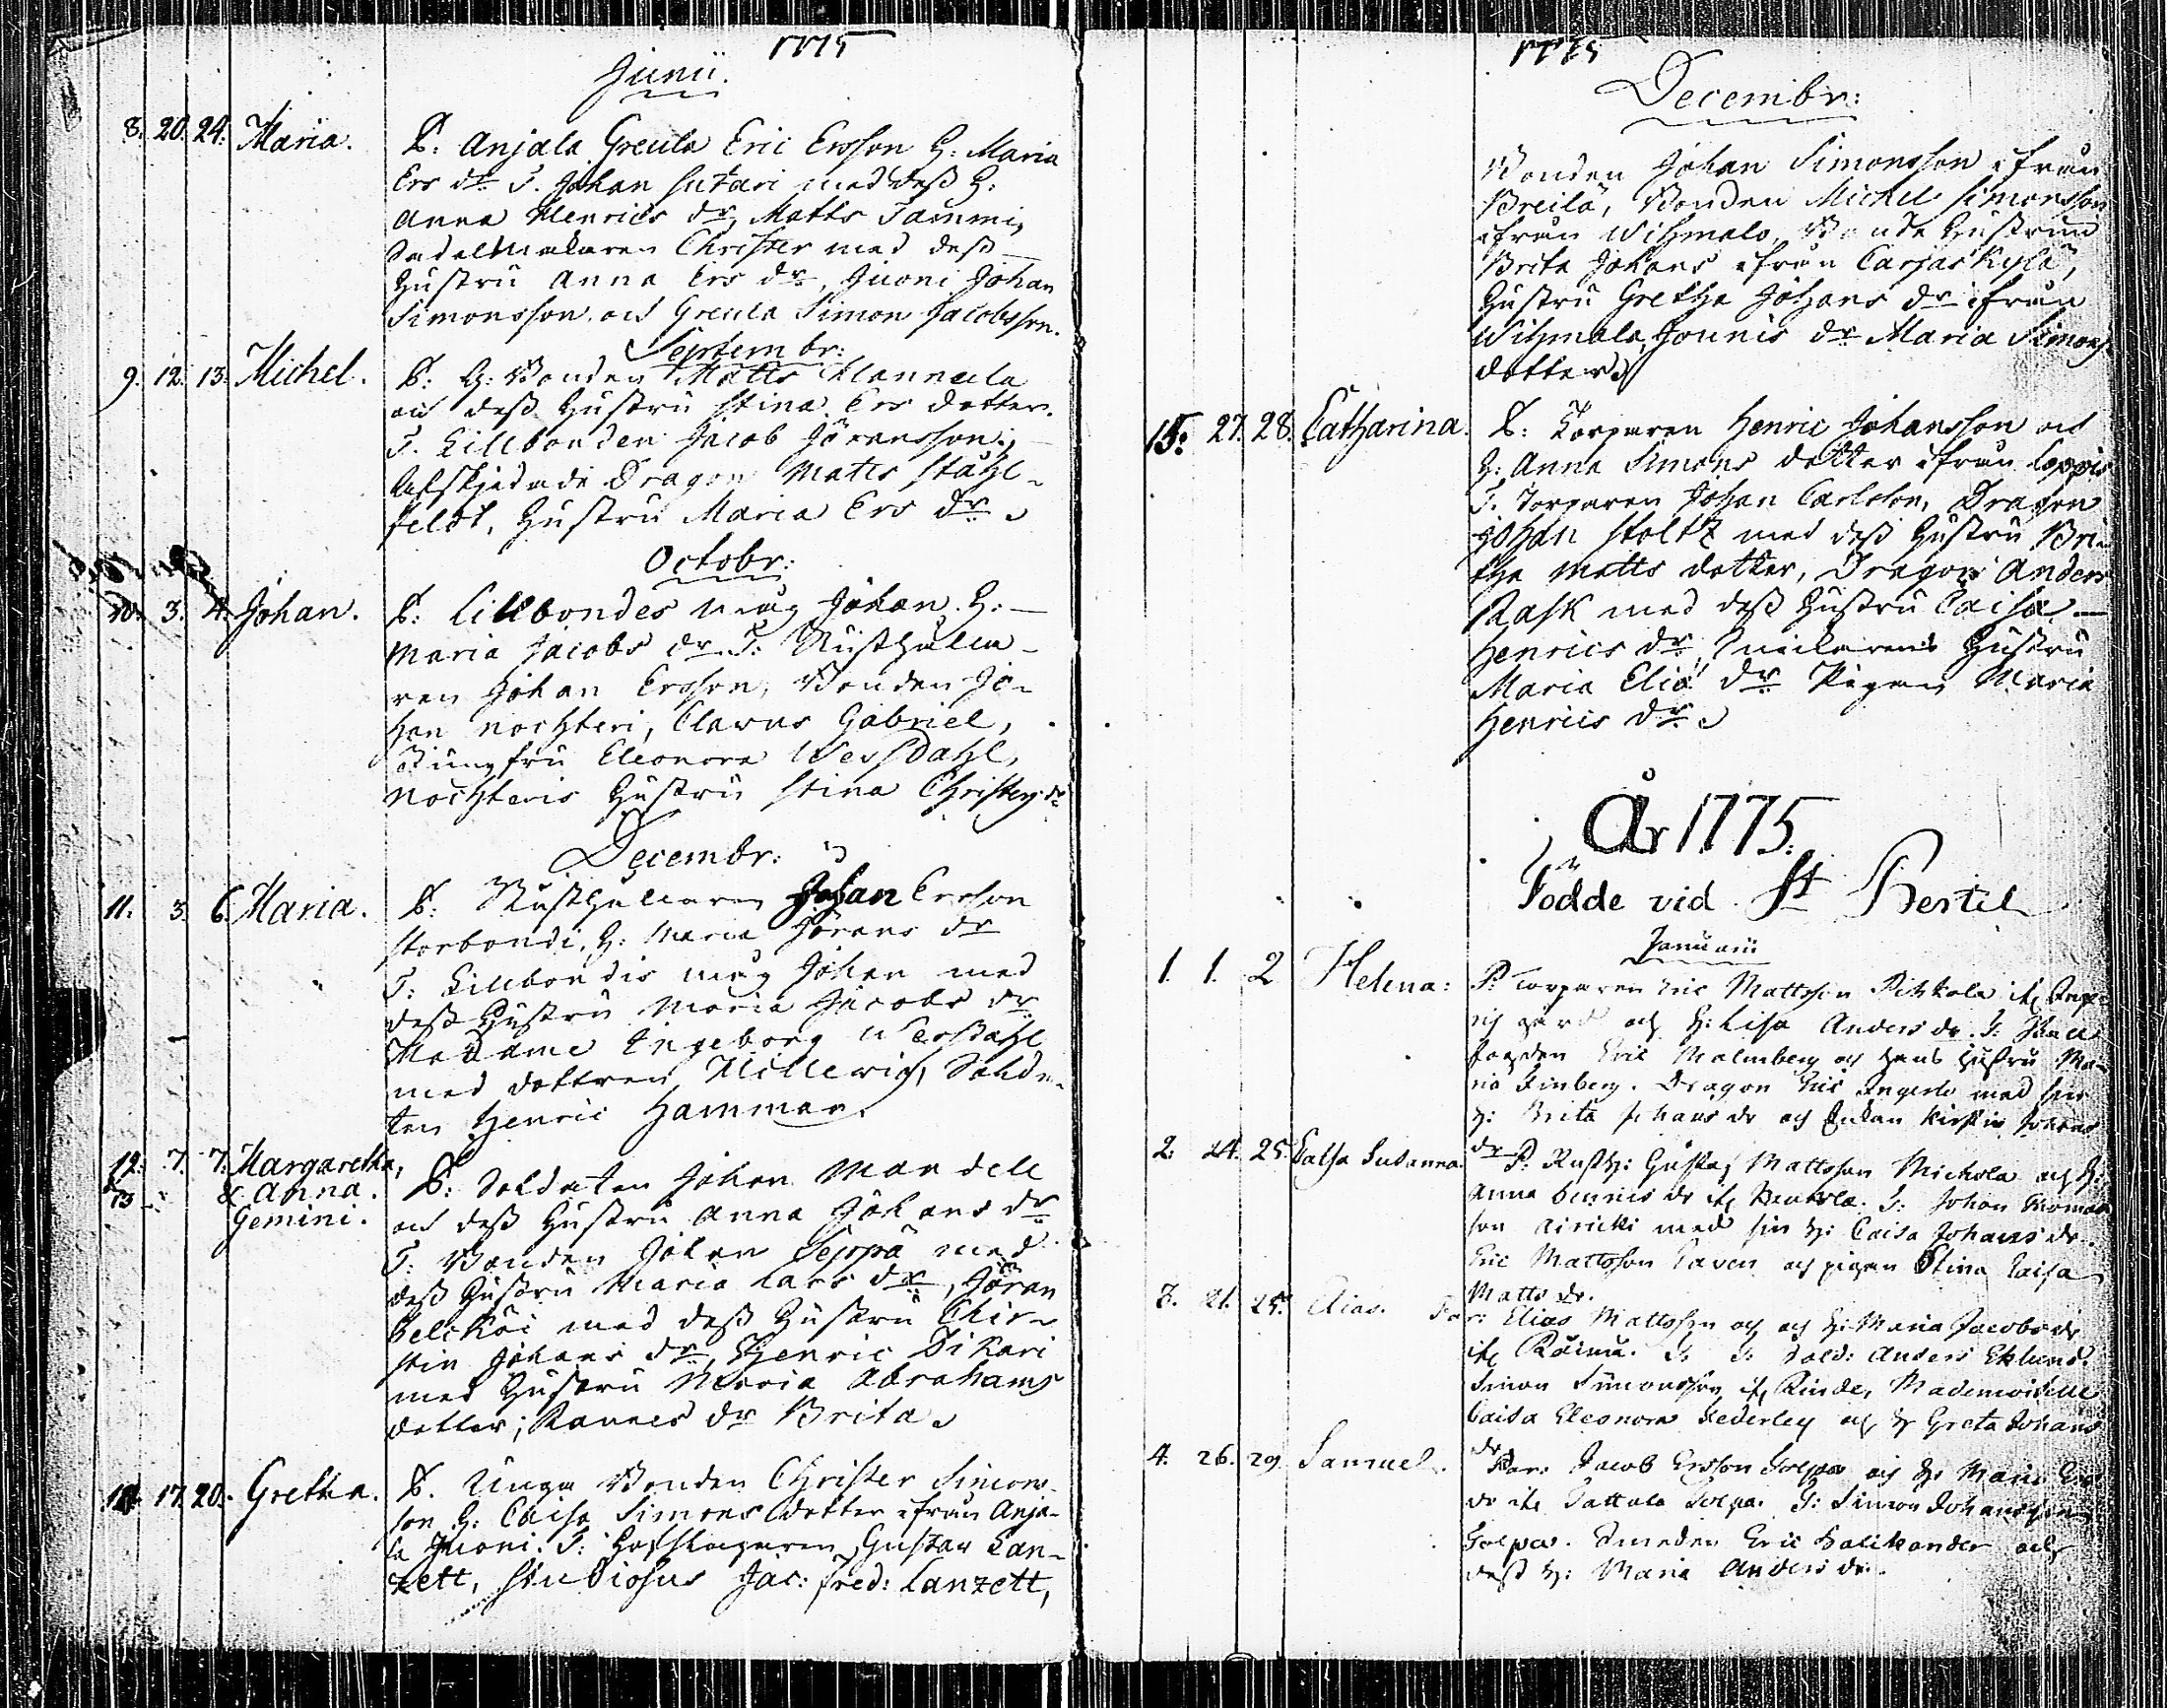 1775
Junii.
8. 20. 24. Maria. P: Anjala Greula Eric Ersson H: Maria
Ers dr T. Johan Sutari med dess H:
Anna Henrics dr, Matts Tammi,
Sadelmakaren Christer med dess
Hustru Anna Ers dr, Juoni Johan
Simonsson och Greula Simon Jacobsson.
Septembr:
9. 12. 13. Michel. P: H: Bonden Matts Mannula
och dess Hustru Stina Ers dotter.
T. Lillbonden Jacob Göransson,
Afskjedade Dragon Matts Ståhl-
feldt, Hustru Maria Ers dr
Octobr:
10. 3. 4. Johan. P: Lillbondes måg Johan H:
Maria Jacobs dr T: Rusthålla-
ren Johan Ersson, Bonden Jo-
han Nochteri, Clavus Gabriel,
Jungfru Eleonora Wessdahl,
Nochteris Hustru Stina Christers dr
Decembr:
11. 3. 6. Maria. P: Rusthållaren Johan Ersson
Storbondi, H: Maria Görans dr
T: Lillbondis måg Johan med
dess Hustru Maria Jacobs dr
Madame Ingeborg Wessdahl
med dottren Hillewig, Solda-
ten Henric Hammar.
12. 7. 7. Margaretha,
& 13 & Anna. P: Soldaten Johan Mandell
Gemini. och dess Hustru Anna Johans dr
T: Bonden Johan Seppä med
dess Hustru Maria Lars dr, Göran
Selckoi med dess Hustru Chir-
stin Johans dr, Henric Dikari
med Hustru Maria Abrahams
dotter; Rannes dr Brita
14. 17. 20. Gretha. P. Unga Bonden Christer Simons-
son H: Caisa Simons dotter ifrån Anja-
la Juoni. T: Gustav Lan-
zett, Studiosus Jac: Fred: Lanzett,
1775
Decembr:
Bonden Johan Simonsson ifrån
Breilä, Bonden Michel Simonsson
ifrån Wihmalo, Bonde Hustrun
Brita Johans ifrån Carjaskylä,
Hustru Gretha Johans dr ifrån
Wihmalo, Jounis dr Maria Simons
dotter
15. 27. 28. Catharina. P: Torparen Henric Johansson och
H: Anna Simons dotter ifrån Loppis
T: Torparen Johan Carlsson, Dragon
Johan Stoltz med dess Hustru Bri-
tha Matts dotter, Dragon Anders
Rask med dess Hustru Caisa
Henrics dr, Hustru
Maria Elia dr Pigan Maria
Henrics dr
År 1775.
Födde vid St Bertil
Januarii
1. 1. 2 Helena: P: Torparen Eric Mattsson Pihkala
gård och H: Lisa Anders dr. T:
Eric Malmberg och hans hustru Ma-
ria Finberg. Dragon Eric Ingerlo med sin
H: Brita Johans dr och Enkan Kirstin Johans
dr
2. 24. 25. Caisa Susanna. P. Rusth: Gustaf Mattsson Michola och H:
Anna Dennis dr T: Johan Thomas
son Airicki med sin H: Caisa Johans dr.
Eric Mattsson Caven och pigan Stina Caisa
Matts dr.
3. 21. 25. Elias. Far: Elias Mattsson och och H: Maria Jacobs dr
T: T: Sold: Anders Eklund.
Simon Simonsson Rinde, Mademoiselle
Caisa Eleonora Federley och H Greta Johans
dr
4. 26. 29. Samuel. Far: Jacob Ersson Solpa och H: Maria Ers
dr Tattala Solpa. T: Simon Johansson
Solpa. Smeden Eric Balikander och
dess H: Maria Anders dr.